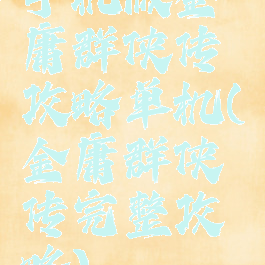 手机版金
庸群侠传
攻略单机(
金庸群侠
传完整攻
略)